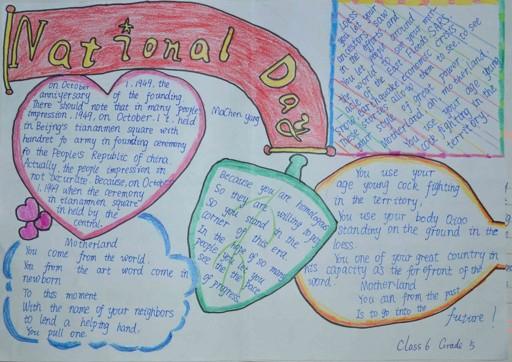 National Day
on October 1.1949, the
anniversary of the founding
There should note that in many people
impression, 1949, on October. 1 t. held
in Beijing's tiananmen square with
hundret fo army in founding ceremony
Ro the People's Republic of china.
Actually, the people impression in
not accurate. Because, on October
1.1949 when the ceremony
in tiananmen square
in held by the
central.
MaChen yang
Motherland
You come from the world.
You from the art word come in
newborn
To this moment
With the name of your neighbors
to lend a helping hand.
You pull one.
Because you are homologous
So they are willing to pay
So you stand in the
corner of this era.
In the of so many
people you let you
see the the face
of progress.
You use your
age young cock fighting
in the territory,
You use your body
standing on the ground in the
loess.
You one of your great country in
its capacity as the forofront of the
word.
Motherland
You can from the past
Is to go into the
future!
Loess
you let your
ancestors saw
the efforts and
You let people around
the world to see your most
economic crisis
to see to see
great power.
your Motherland ah motherland.
You use your age young
cock fighting in the
territory.
Class 6 Gradi 5